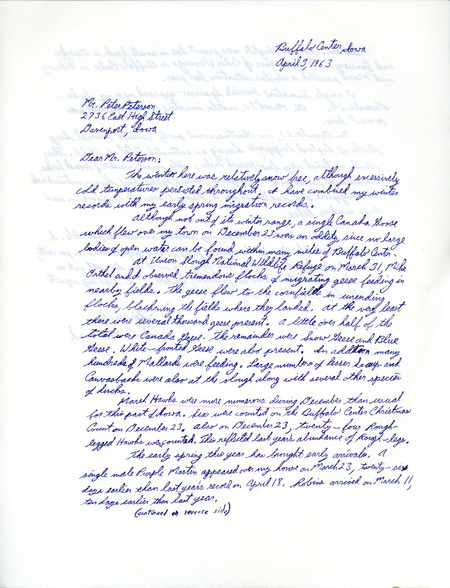 Buffalo Center, Iowa
April 3, 1963
Mr. Peter Peterson
2736 East High Street
Davenport, Iowa
Dear Mr. Peterson:
The winter here was relatively snow free, although excessively
cold temperatures persisted throughout. I have combined my winter
records with my early spring migration records.
Although not out of its winter range, a single Canada Goose
which flew over my town on December 23 was an oddity, since no large
bodies of open water can be found within many miles of Buffalo Center.
At Union Slough National Wildlife Refuge on March 31, Mike
and I observed tremendous flocks of migrating geese feeding in
nearby fields. The geese flew to the cornfields in unending
flocks, blackening the fields where they landed. At the very least
there were several thousand geese present. A little over half of the
total were Canada Geese. The remainder were Snow Geese and Blue
Geese. White-fronted Geese were also present. In addition many
hundreds of Mallards were feeding. Large numbers of lesser Scaup and
Canvasbacks were also at the slough along with several other species
of ducks.
Marsh Hawks were more numerous during December than usual
for this part of Iowa. Six were counted on the Buffalo Center Christmas
Count on December 23. Also on December 23, twenty-four Rough-
legged Hawks was counted. This reflected last year's abundance of Rough-legs.
The early spring this year has brought early arrivals. A
single male Purple Martin appeared over my house on March 23, twenty-six
days earlier than last year's record on April 18. Robins arrived on March 11,
ten days earlier than last year.
(continued on reverse side)